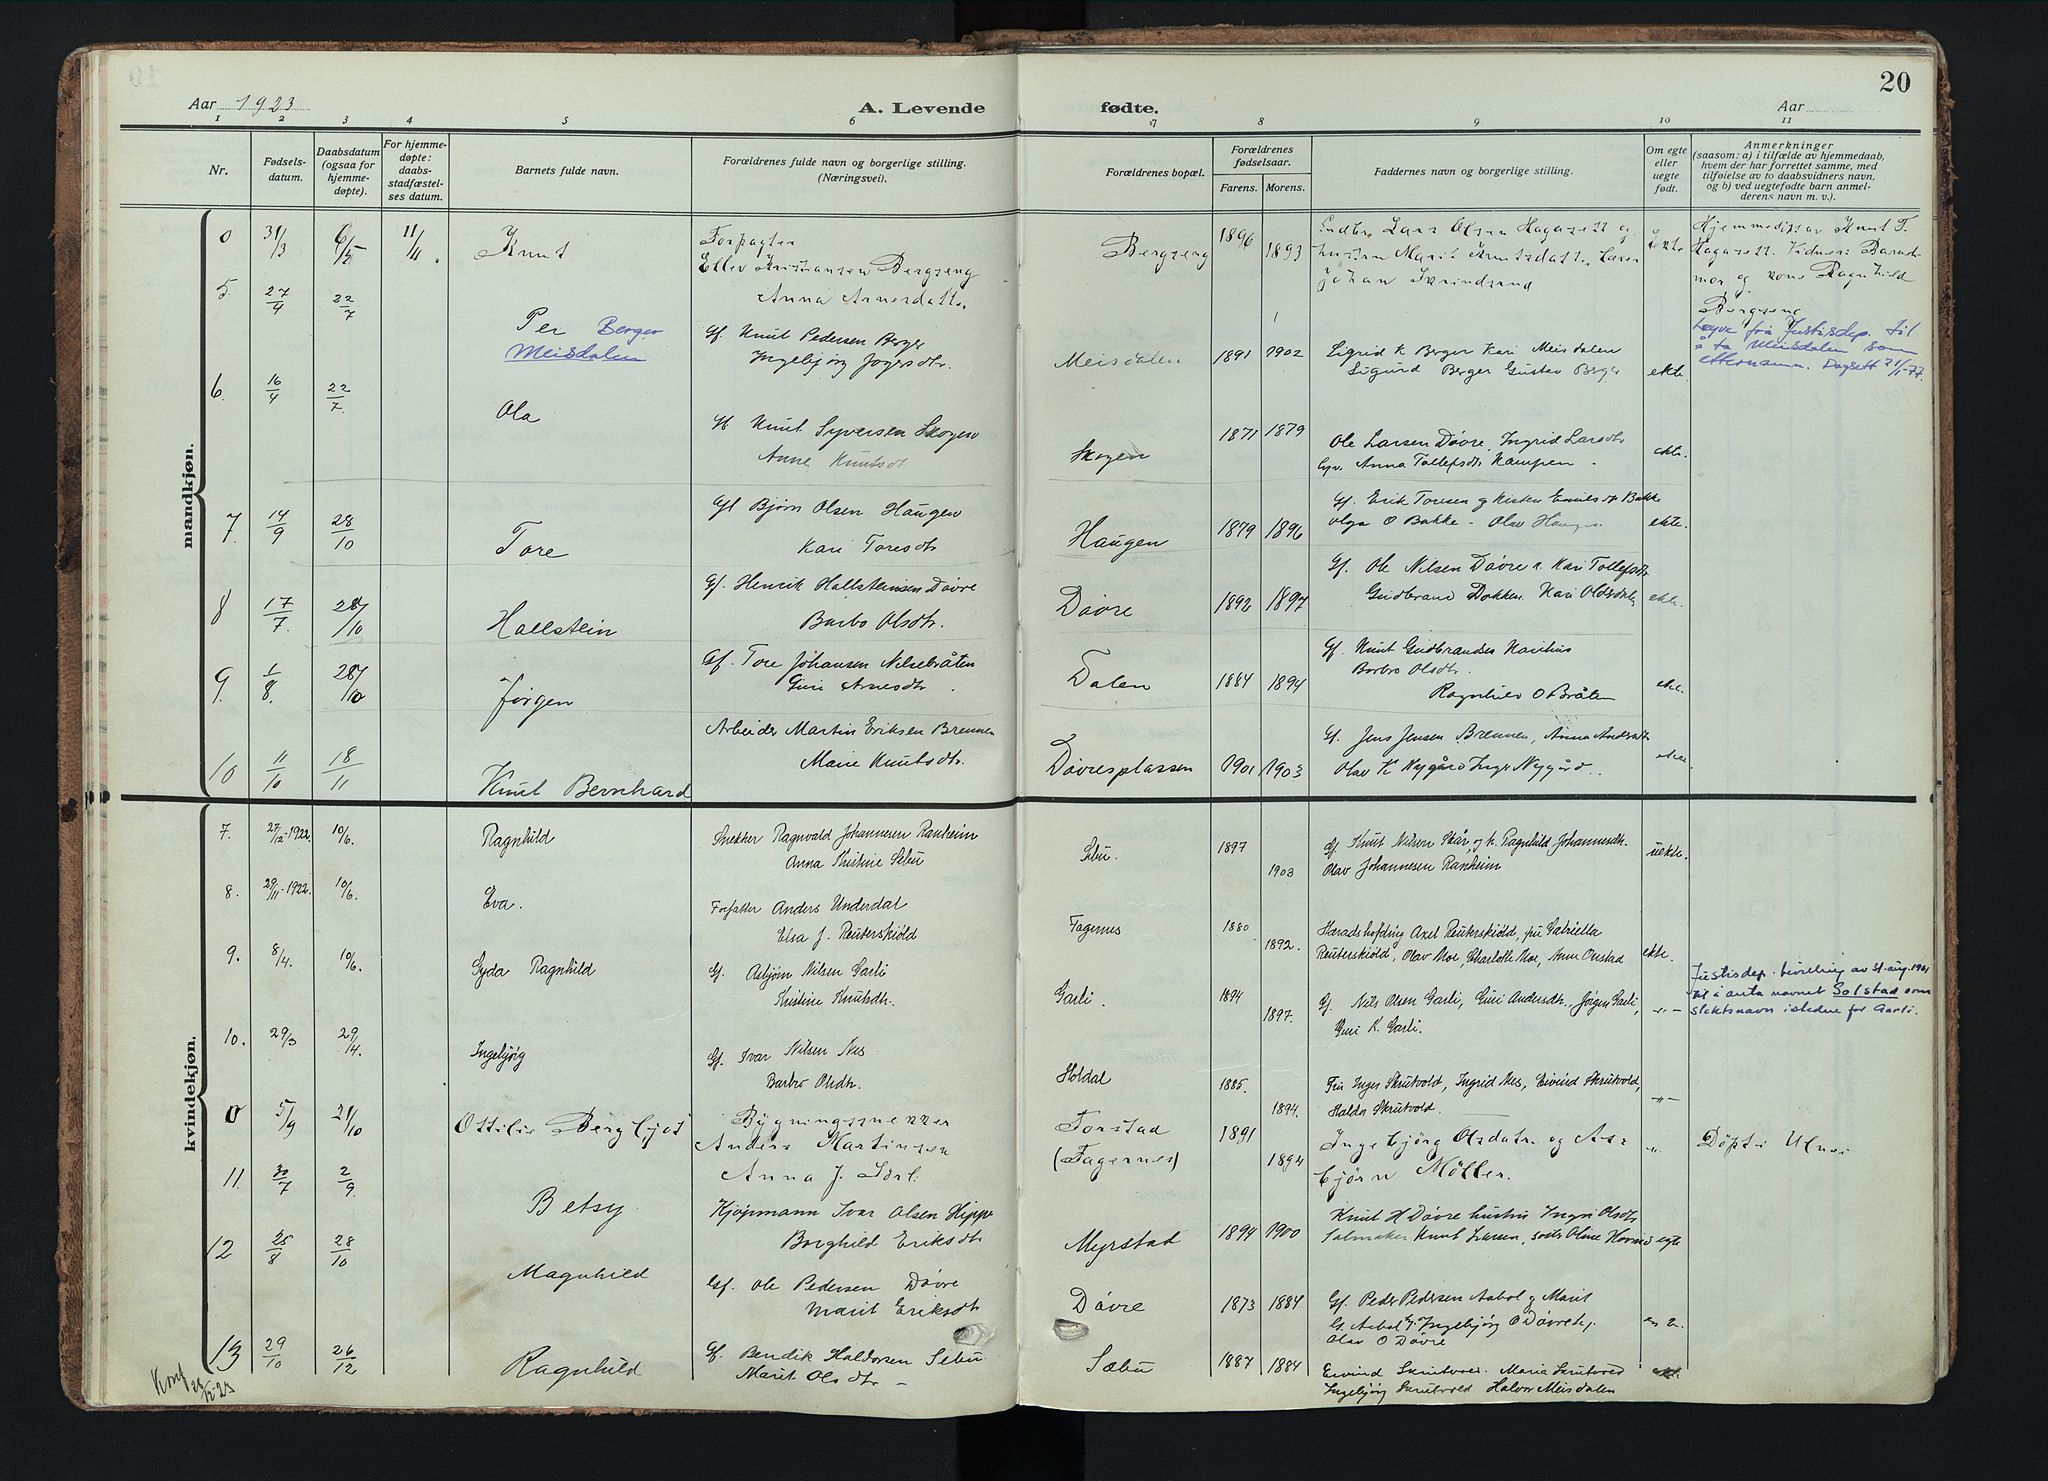 Aar 1923
A. Levende
fødte.
Aar
20
1 2 3 4 5 6 7 8 9 10 11
Nr.
Fødsels-
datum.
Daabsdatum
(ogsaa for
hjemme-
døpte).
For hjemme-
døpte:
daabs-
stadfæstel-
ses datum.
Barnets fulde navn.
Forældrenes fulde navn og borgerlige stilling.
(Næringsvei).
Forældrenes bopæl.
Forældrenes
fødselsaar.
Farens. Morens.
Faddernes navn og borgerlige stilling.
Om egte
eller
uegte
født.
Anmerkninger
(saasom: a) i tilfælde av hjemmedaab,
hvem der har forrettet samme, med
tilføielse av to daabsvidners navn,
og b) ved uegtefødte barn anmel-
derens navn m. v.).
mandkjøn.
0 31/3 6/5 11/4. Knut
Forpagter
Ellev Kristiansen Bergseng
Anna Arnesdatter
Bergseng 1896 1893
Lars Olsen Hagasett og
hustru Marit Knutsdatter, Lars
Johan Skrindsrud
Hjemmedøpt av Knut T.
Hagasett. Vidner: Barnets
mor og kone Ragnhild
Bergseng
5. 27/4 22/7 Per Berger
Meisdalen
Gf. Knut Pedersen Berger
Ingebjørg
Meisdalen 1891 1902
Sigrid K Berger Kari Meisdalen
Sigurd Berger Gustav Berger
ekte.
Løyve frå Justisdep. til
å ta Meisdalen som
etternamn. Dagsett 21/1-77.
6. 16/4 22/7 Ola
Knut Syversen Skogen
Anne Knutsdt
Skogen 1871 1879
Ole Larsen Døvre, Ingrid Larsdtr
Anna Tollefsdtr Kampen.
ekte.
7. 14/9 28/10 Tore
Gf Bjørn Olsen Haugen
Kari Toresdtr
Haugen 1879 1896
Gf. Erik Toresen og Bakke
Olga O Bakke - Olav Haugen
ekte.
8 17/7. 28/10 Hallstein
Gf. Henrik Hallsteinsen Døvre
Barbo Olsdtr.
Døvre 1892 1897
Gf. Ole Nilsen Døvre Kari Tollefsdtr
Gudbrand Dokken. Kari
ekte.
9. 1/8. 28/10 Jørgen
Gf. Tore Johansen Nilsebråten
Guri Arnesdtr.
Dalen 1884 1894
Gf. Knut Gudbrandsen
Barbro Olsdtr.
Ragnhild O Bråten
ekte.
10 11/10 18/11 Knut Bernhard
Arbeider Martin Eriksen Brennen
Marie Knutsdtr.
Døvresplassen 1901 1903
Gf. Jens Jensen Brennen, Anna Andersdtr
Olav K Nygård Inger Nygård.
ekte.
kvindekjøn.
7. 27/12-1922. 10/6. Ragnhild
Snekker Ragnvald Johannesen Ranheim
Anna Kristine Sebu
Sebu. 1897 1903
Gf. Knut Nilsen Skår, og k. Ragnhild Johannesdtr.
Olav Johannesen Ranheim
uekte.
8. 29/11-1922. 10/6. Eva.
Forfatter Anders Underdal
Elsa J. Reuterskiöld
Fagernes 1880 1892.
Häradshöfding Axel Reuterskiöld, fru Gabriella
Reuterskiöld, Olav Moe, Charlotte Moe, Arne Onstad
ekte.
9. 8/4. 10/6. Gyda Ragnhild
Gf. Asbjørn Nilsen Garli
Kristine Knutsdtr.
Garli. 1894 1897.
Gf. Nils Olsen Garli, Guri Andersdtr., Jørgen Garli,
Guri K. Garli.
-"-
Justisdep. bevilling av 31. aug. 1961
til å anta navnet Solstad som
slektsnavn istedenfor Garli.
10. 29/3 29/4. Ingebjørg
Gf. Ivar Nilsen Nes
Barbro Olsdtr.
Holdal 1885. 1894.
Fru Inger Skrutvold, Ingrid Nes, Eivind Skrutvold,
Haldor Skrutvold.
-"-
0 5/9 21/10 Ottilie Bergljot
Bygningssnekker
Anders Martinsen
Anna J.
Forstad
(Fagernes) 1891 1894
Ingebjørg Olsdatr. og As-
bjørn Möller.
"
Døpt i Ulnes
11. 30/7 2/9. Betsy
Kjøpmann Ivar Olsen Hippe
Borghild Eriksdtr
Myrstad 1894 1900
Knut H Døvre hustru Ingri Olsdtr
Salmaker Knut Larsen,
egte
12 25/8 28/10 Magnhild
Gf. Ole Pedersen Døvre
Marit Eriksdtr
Døvre 1873 1884
Gf. Peder Pedersen Aabol og Marit
G. Aabol Ingebjørg O Døvre
Olav O Døvre
13 29/10 26/12 Ragnhild
Gf. Bendik Haldorsen Sebu
Marit Olsdtr -
Sæbu 1887 1884
Eivind Skrutvold. Maria Skrutvold
Ingebjørg Skrutvold Halvor Meisdalen